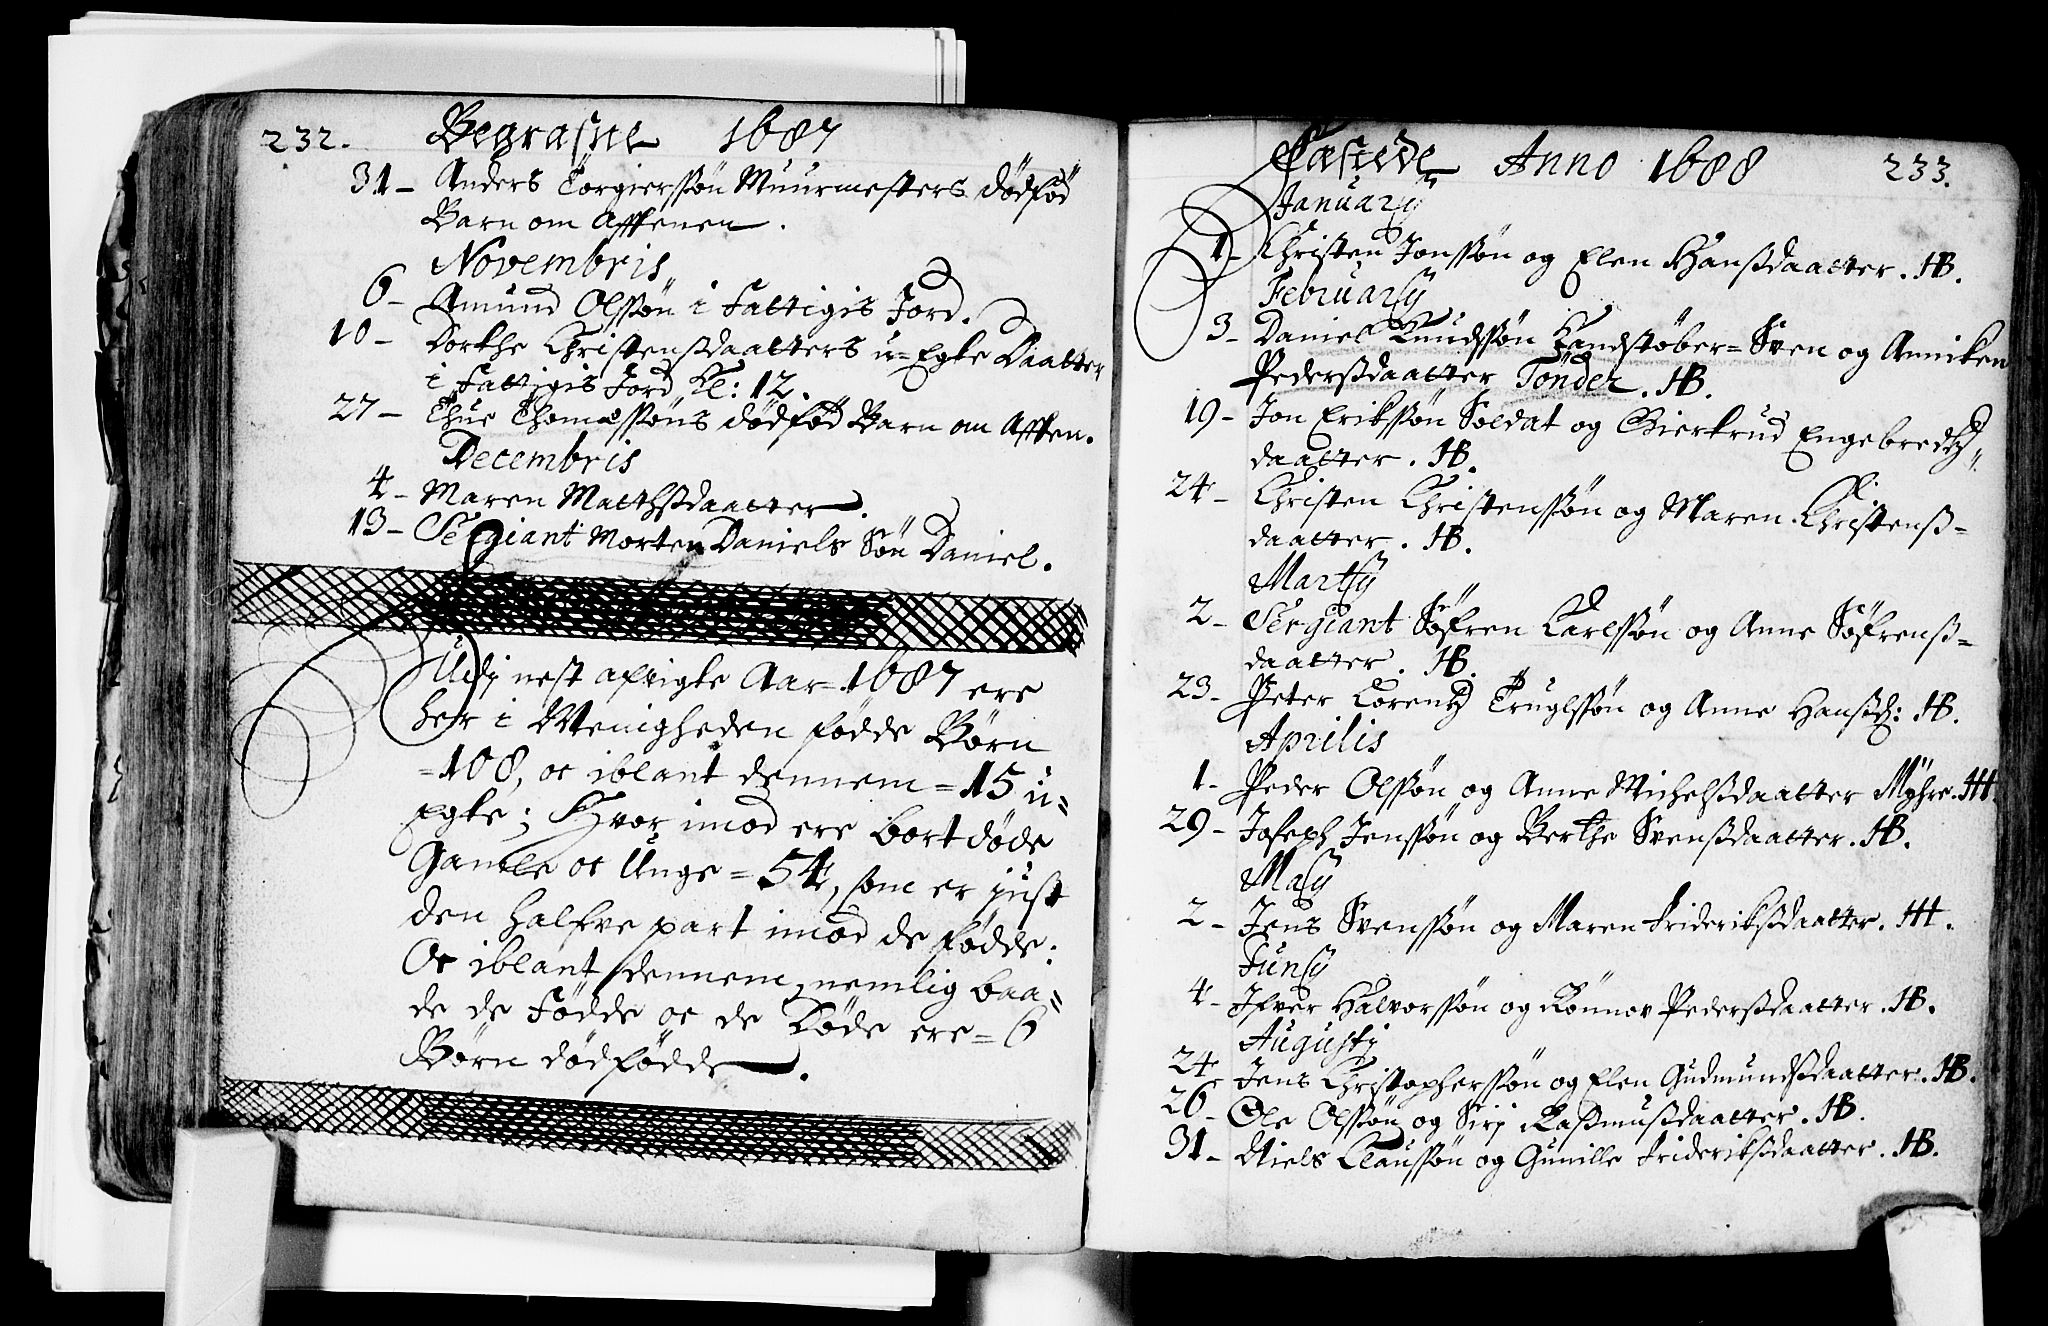 232. Begrafne 1687
31 – Anders Torgierssøn Muurmesters dødfød
Barn om Afftenen.
Novembris
6 – Amund Olssøn i Fattigis Jord.
10 – Dorthe Christensdaatters u=Egte Daatter
i Fattigis Jord Kl: 12.
27 – Thue Thomæssøns dødfød Barn om Afften.
Decembris
4 – Maren Matthsdaatter.
13 – Sergiant Morten Daniels Søn Daniel.
Udj nest afvigte Aar 1687 ere
her i Menigheden fødde Børn
=108, oc iblant dennem =15 u=
Egte; Hvor imod ere bortdøde
Gamle oc Unge =54, som er just
den halfve part imod de fødde:
Oc iblant dennem, nemlig baa=
de de Fødde oc de Døde ere =6
Børn dødfødde.
Fæstede Anno 1688 233.
Januarij
1 – Christen Jonssøn og Elen Hanssdaatter. HB.
Februarij
3 – Daniel Knudssøn Handstøber=Sven og Anniken
Pederssdaatter Tønder. HB.
19 – Jon Erikssøn Soldat og Giertrud Engebredtz=
daatter. HB.
24 – Christen Christenssøn og Maren Christenss=
daatter. HB.
Martij
2 – Sergiant Søfren Carlssøn og Anne Søfrenss=
daatter. HB.
23 – Peter Lorentz Truglssøn og Anne Hanssd: HB.
Aprilis
1 – Peder Olssøn og Anne Michelssdaatter Myhre. HH.
29 – Joseph Jenssøn og Berthe Svenssdaatter. HB.
Maij
2 – Jens Svenssøn og Maren Friderikssdaatter. HH.
Junij
4 – Ifver Halvorssøn og Rønnov Pederssdaatter. HB.
Augustj
24 – Jens Christopherssøn og Elen Gudmundssdaatter. HB.
26 – Ole Olssøn og Sirj Rassmussdaatter. HB.
31 – Niels Claussøn og Gunille Friderikssdaatter. HB.